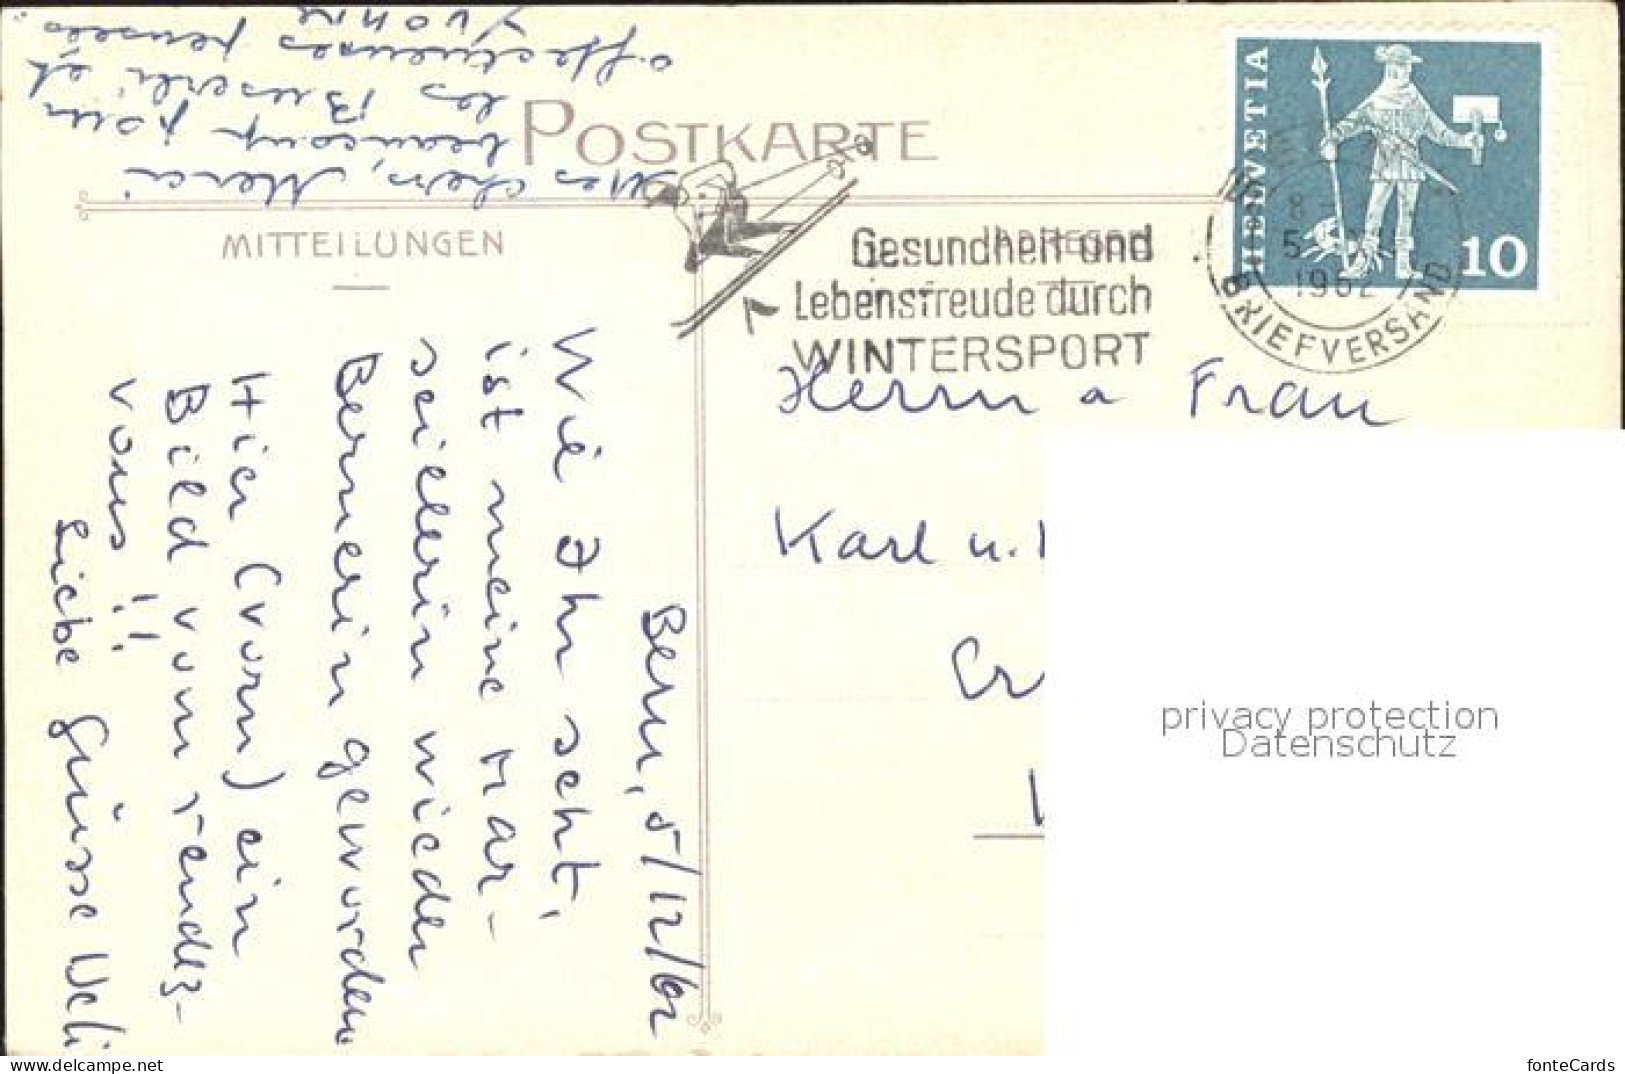 Mes chers, Merci
beaucoup pour
les Buserli et
affectueuses pensées
Yvonne
POSTKARTE
MITTEILUNGEN
HELVETIA
10
Gesundheit und
Lebensfreude durch
WINTERSPORT
8
5
1962
BRIEFVERSAND
Bern, 5/12/62
Wie Ihr seht,
ist meine Mar-
seillerin wieder
Bernerin geworden
Hier (vorn) ein
Bild vom rendez-
vous !!
Liebe Grüsse Ueli
Herrn a Frau
Karl u.
Er
privacy protection
Datenschutz
fonteCards